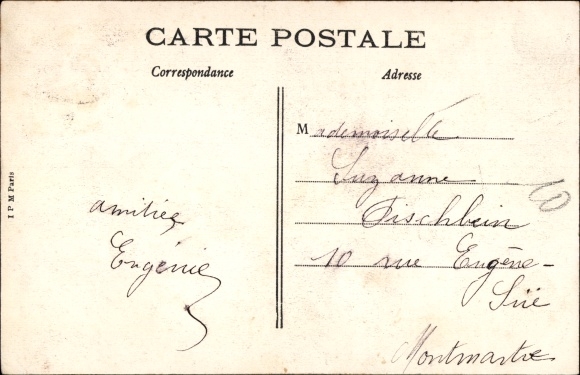 CARTE POSTALE
Correspondance
Adresse
I P M Paris
amitiés
Eugénie
Mademoiselle
Suzanne
Fischbein
10 rue Eugène-
Süe
Montmartre
10